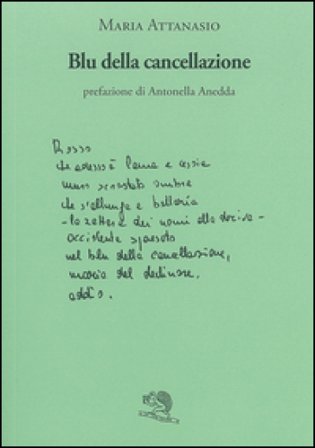 MARIA ATTANASIO
Blu della cancellazione
prefazione di Antonella Anedda
Rosso
che adesso è lama e
muro scrostato ombra
che s'allunga e
- la zattera dei nomi alla deriva -
occidente sparato
nel blu della cancellazione,
del declinare,
addio.